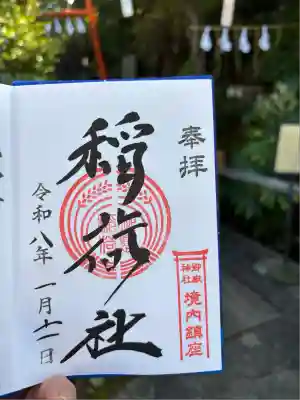 奉拝
稲荷社
令和八年 一月十一日
御嶽神社
境内鎮座